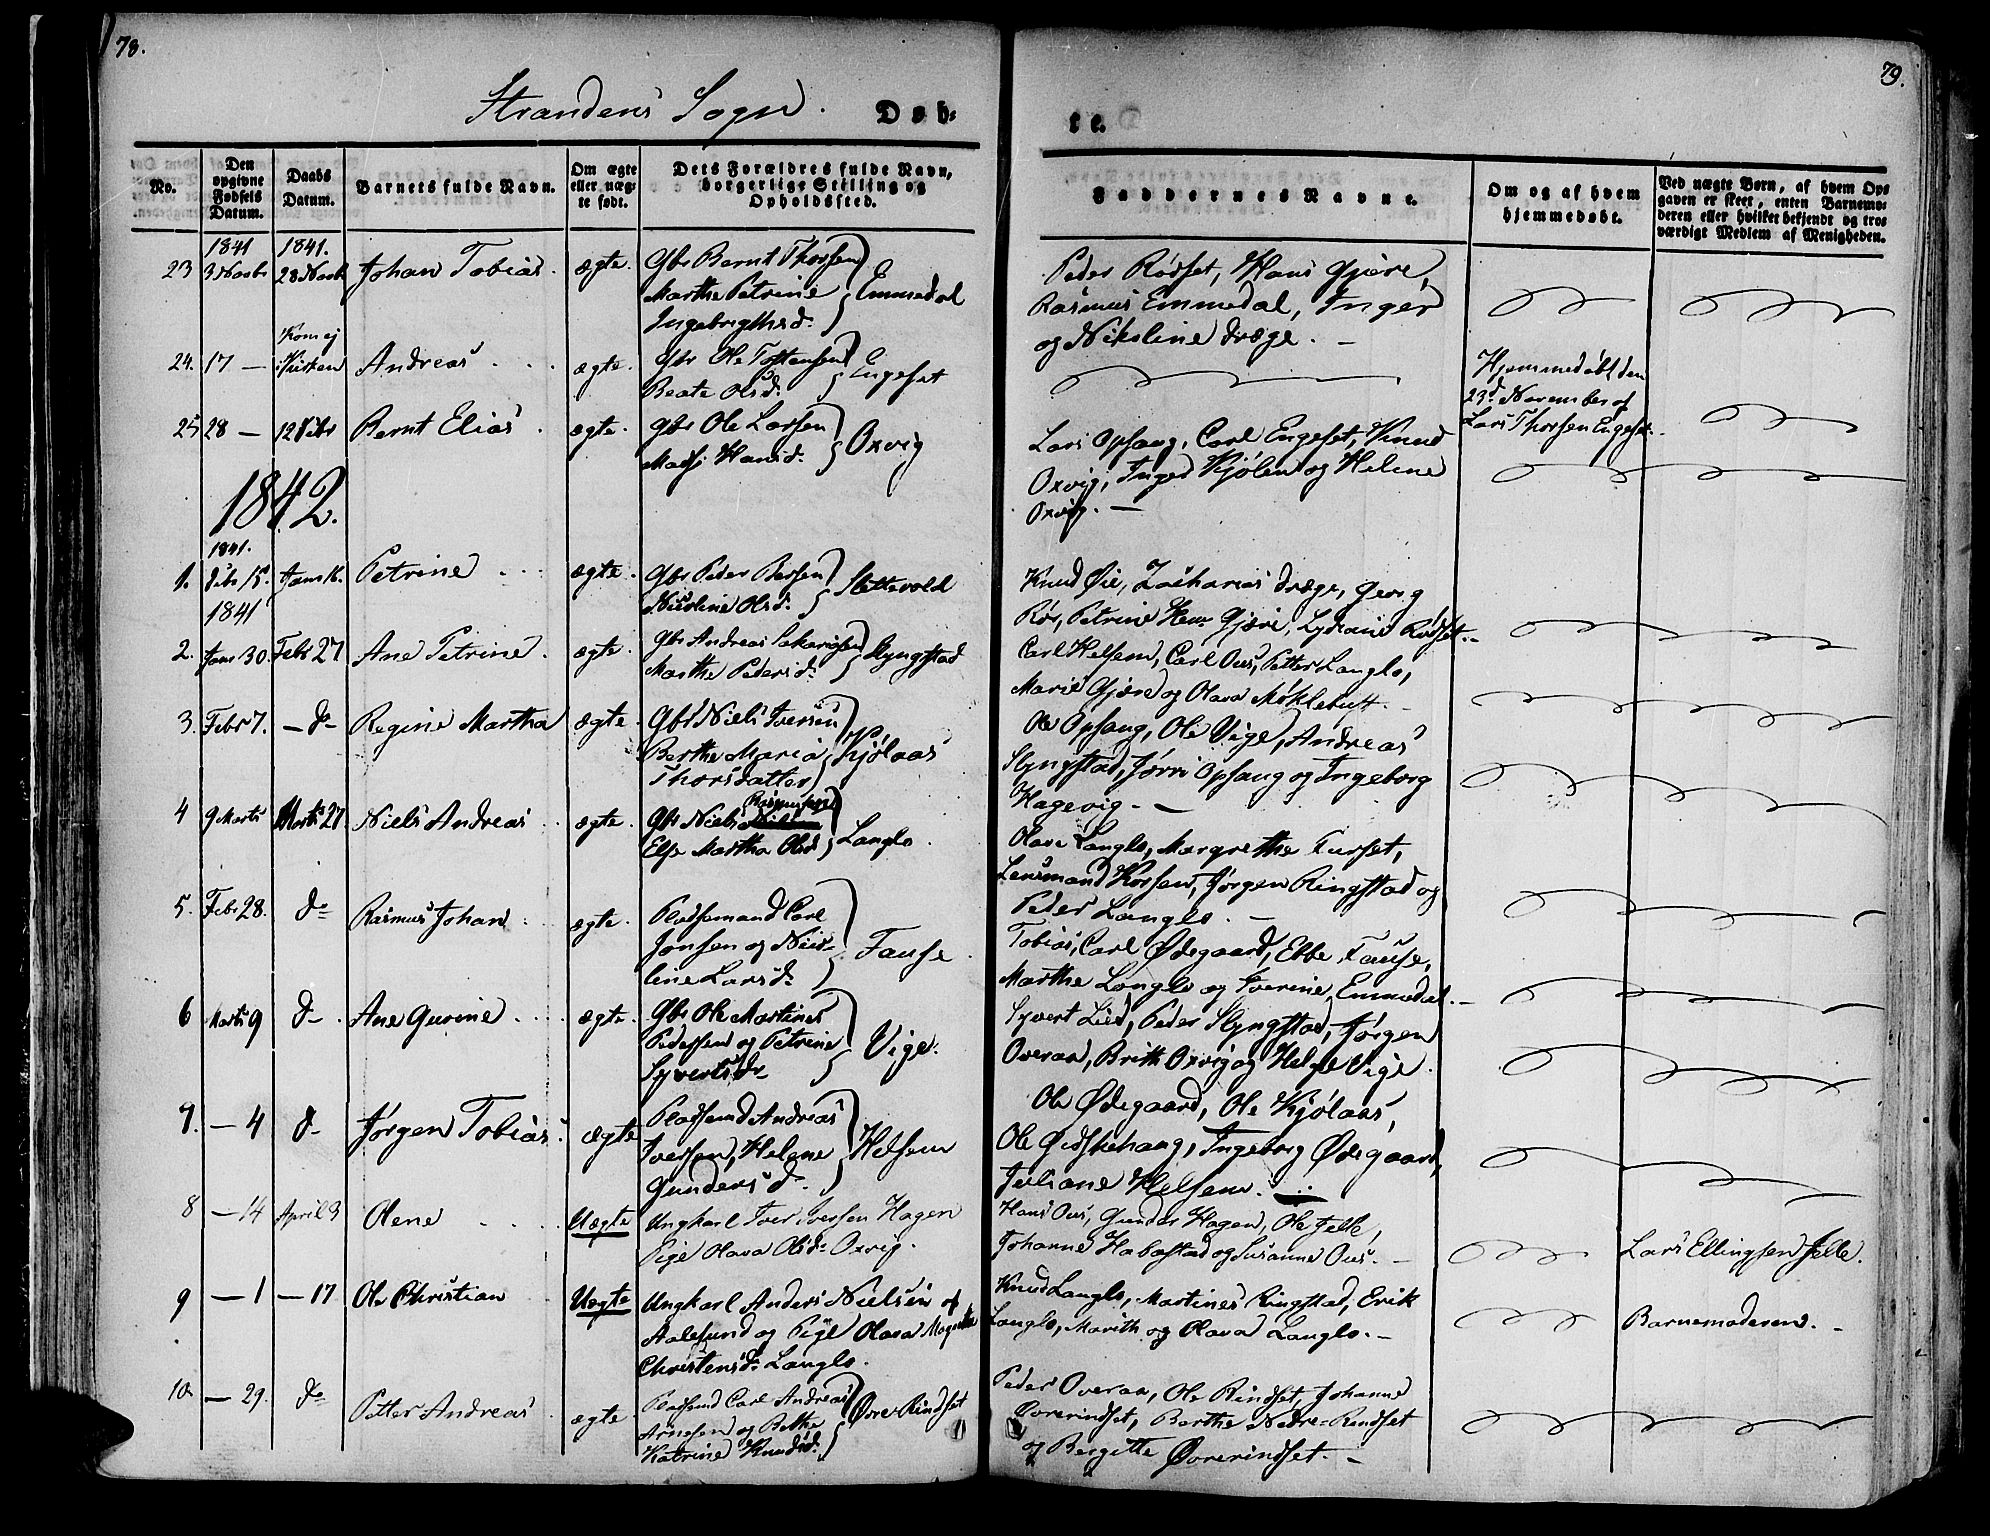 78.
Strandens Sogn.
Døb-
No.
Den opgivne Fødsels Datum.
Daabs Datum.
Barnets fulde Navn.
Om ægte eller uægte født.
Dets Forældres fulde Navn, borgerlige Stilling og Opholdssted.
1841 1841.
23 3 Novbr 28 Novb Johan Tobias. ægte. Gbr Bernt Thorsen
Marthe Petrine Emmedal
Ingebrigthsd.
Kom ej
24. 17 — Kirken Andreas ægte. Gbr Ole Tostensen Engeset
Beate Olsd.
25 28 — 12 Decbr Bernt Elias. ægte. Gbr Ole Larsen
Hansd. Oxvig
1842.
1841.
1. Decbr 15. Janr 16. Petrine ægte. Gbr Peder Bersen Slettevold
Nicoline Olsd.
1841
2. Janr 30. Febr 27 Ane Petrine. ægte. Gbr Andreas Sakariasen Slyngstad
Marthe Pedersd.
3. Febr 7. — do — Regine Martha ægte. Gbr Niels Iversen
Berthe Maria Kjølaas
Thorsdatter
4 9 Marts Marts 27 Niels Andreas ægte. Gbr Niels Rasmussen
Else Martha Olsd. Langlo.
5. Febr 28. do Rasmus Johan ægte. Pladsemand Carl
Jonsen og Nico-
line Larsd. Fause.
6 Marts 9 do Ane Gurine ægte. Gbr Ole Martinus
Pedersen og Petrine Vige.
Syvertsdr
7. — 4 do Jørgen Tobias. ægte Pladsmd Andreas
Iversen, Helene Helsem
Gundersd.
8 — 14 April 3 Olene Uægte Ungkarl Iver Iversen Hagen
Pige Olava Olsd. Oxvig.
9 — 1 — 17 Ole Christian Uægte Ungkarl Anders Nielsen af
Aalesund og Pige Olava
Christensd. Langlo.
10. — 29. do Petter Andreas ægte. Pladsmd Carl Andreas
Arnesen og Berthe Øvre-Rindset
Katrine Knudsd.
79.
te.
Faddernes Navne.
Om og af hvem hjemmedøbt.
Ved uægte Børn, af hvem Opgaven er skeet, enten Barnemoderen eller hvilket bekjendt og troværdigt Medlem af Menigheden.
Peder Rødset, Hans Gjære,
Rasmus Emmedal, Inger
og Nikoline Dræge. —
Hjemmedøbt den
23d November af
Lars Thorsen Engeset.
Lars Opsang, Carl Engeset, Knud
Oxvig, Inger Kjølen og Helene
Oxvig. —
Knud Øie, Zacharias Dræge, Georg
Rør, Petrine Gjære, Lydiane Rødset.
Carl Helsem, Carl Ous, Petter Langlo,
Marie Gjære og Olava Møklebust. —
Ole Opsang, Ole Vige, Andreas
Slyngstad, Jørri Opsang og Ingeborg
Hagevig. —
Olave Langlo, Margrethe Furset,
Lensmand Korsen, Jørgen Ringstad og
Peder Langlo. —
Tobias, Carl Ødegaard, Ebbe Fause,
Marthe Langlo og Iverine Emmedal. —
Syvert Lied, Peder Slyngstad, Jørgen
Overaa, Brith Oxvig og Helge Vige.
Ole Ødegaard, Ole Kjølaas,
Ole Gidskehaug, Ingeborg Ødegaard,
Juliane Helsem.
Hans Ous, Gunder Hagen, Ole Jelle,
Johanne Habostad og Susanne Ous. —
Lars Ellingsen Jelle.
Knud Langlo, Martines Ringstad, Erik
Langlo, Marith og Olava Langlo. —
Barnemoderen. —
Peder Overaa, Ole Rindset, Johanne
Øvrerindset, Berthe Nedre-Rindset
og Bergitte Øvrerindset. —